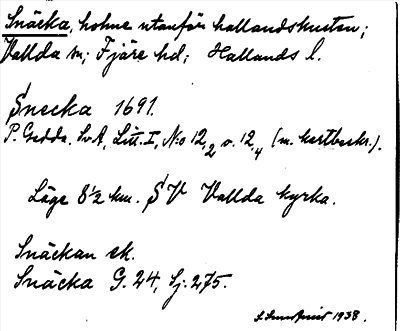 Snäcka, holme utanför hallandskusten;
Vallda sn; Fjäre hd; Hallands l.
Snecka 1691.
P. Gedda. Sv.A, Litt. I, N:o 12,2 o. 12,4 (m. kartbeskr.).
Läge 8½ km. SV Vallda kyrka.
Snäckan ek.
Snäcka G. 24, Sj. 275.
1938.